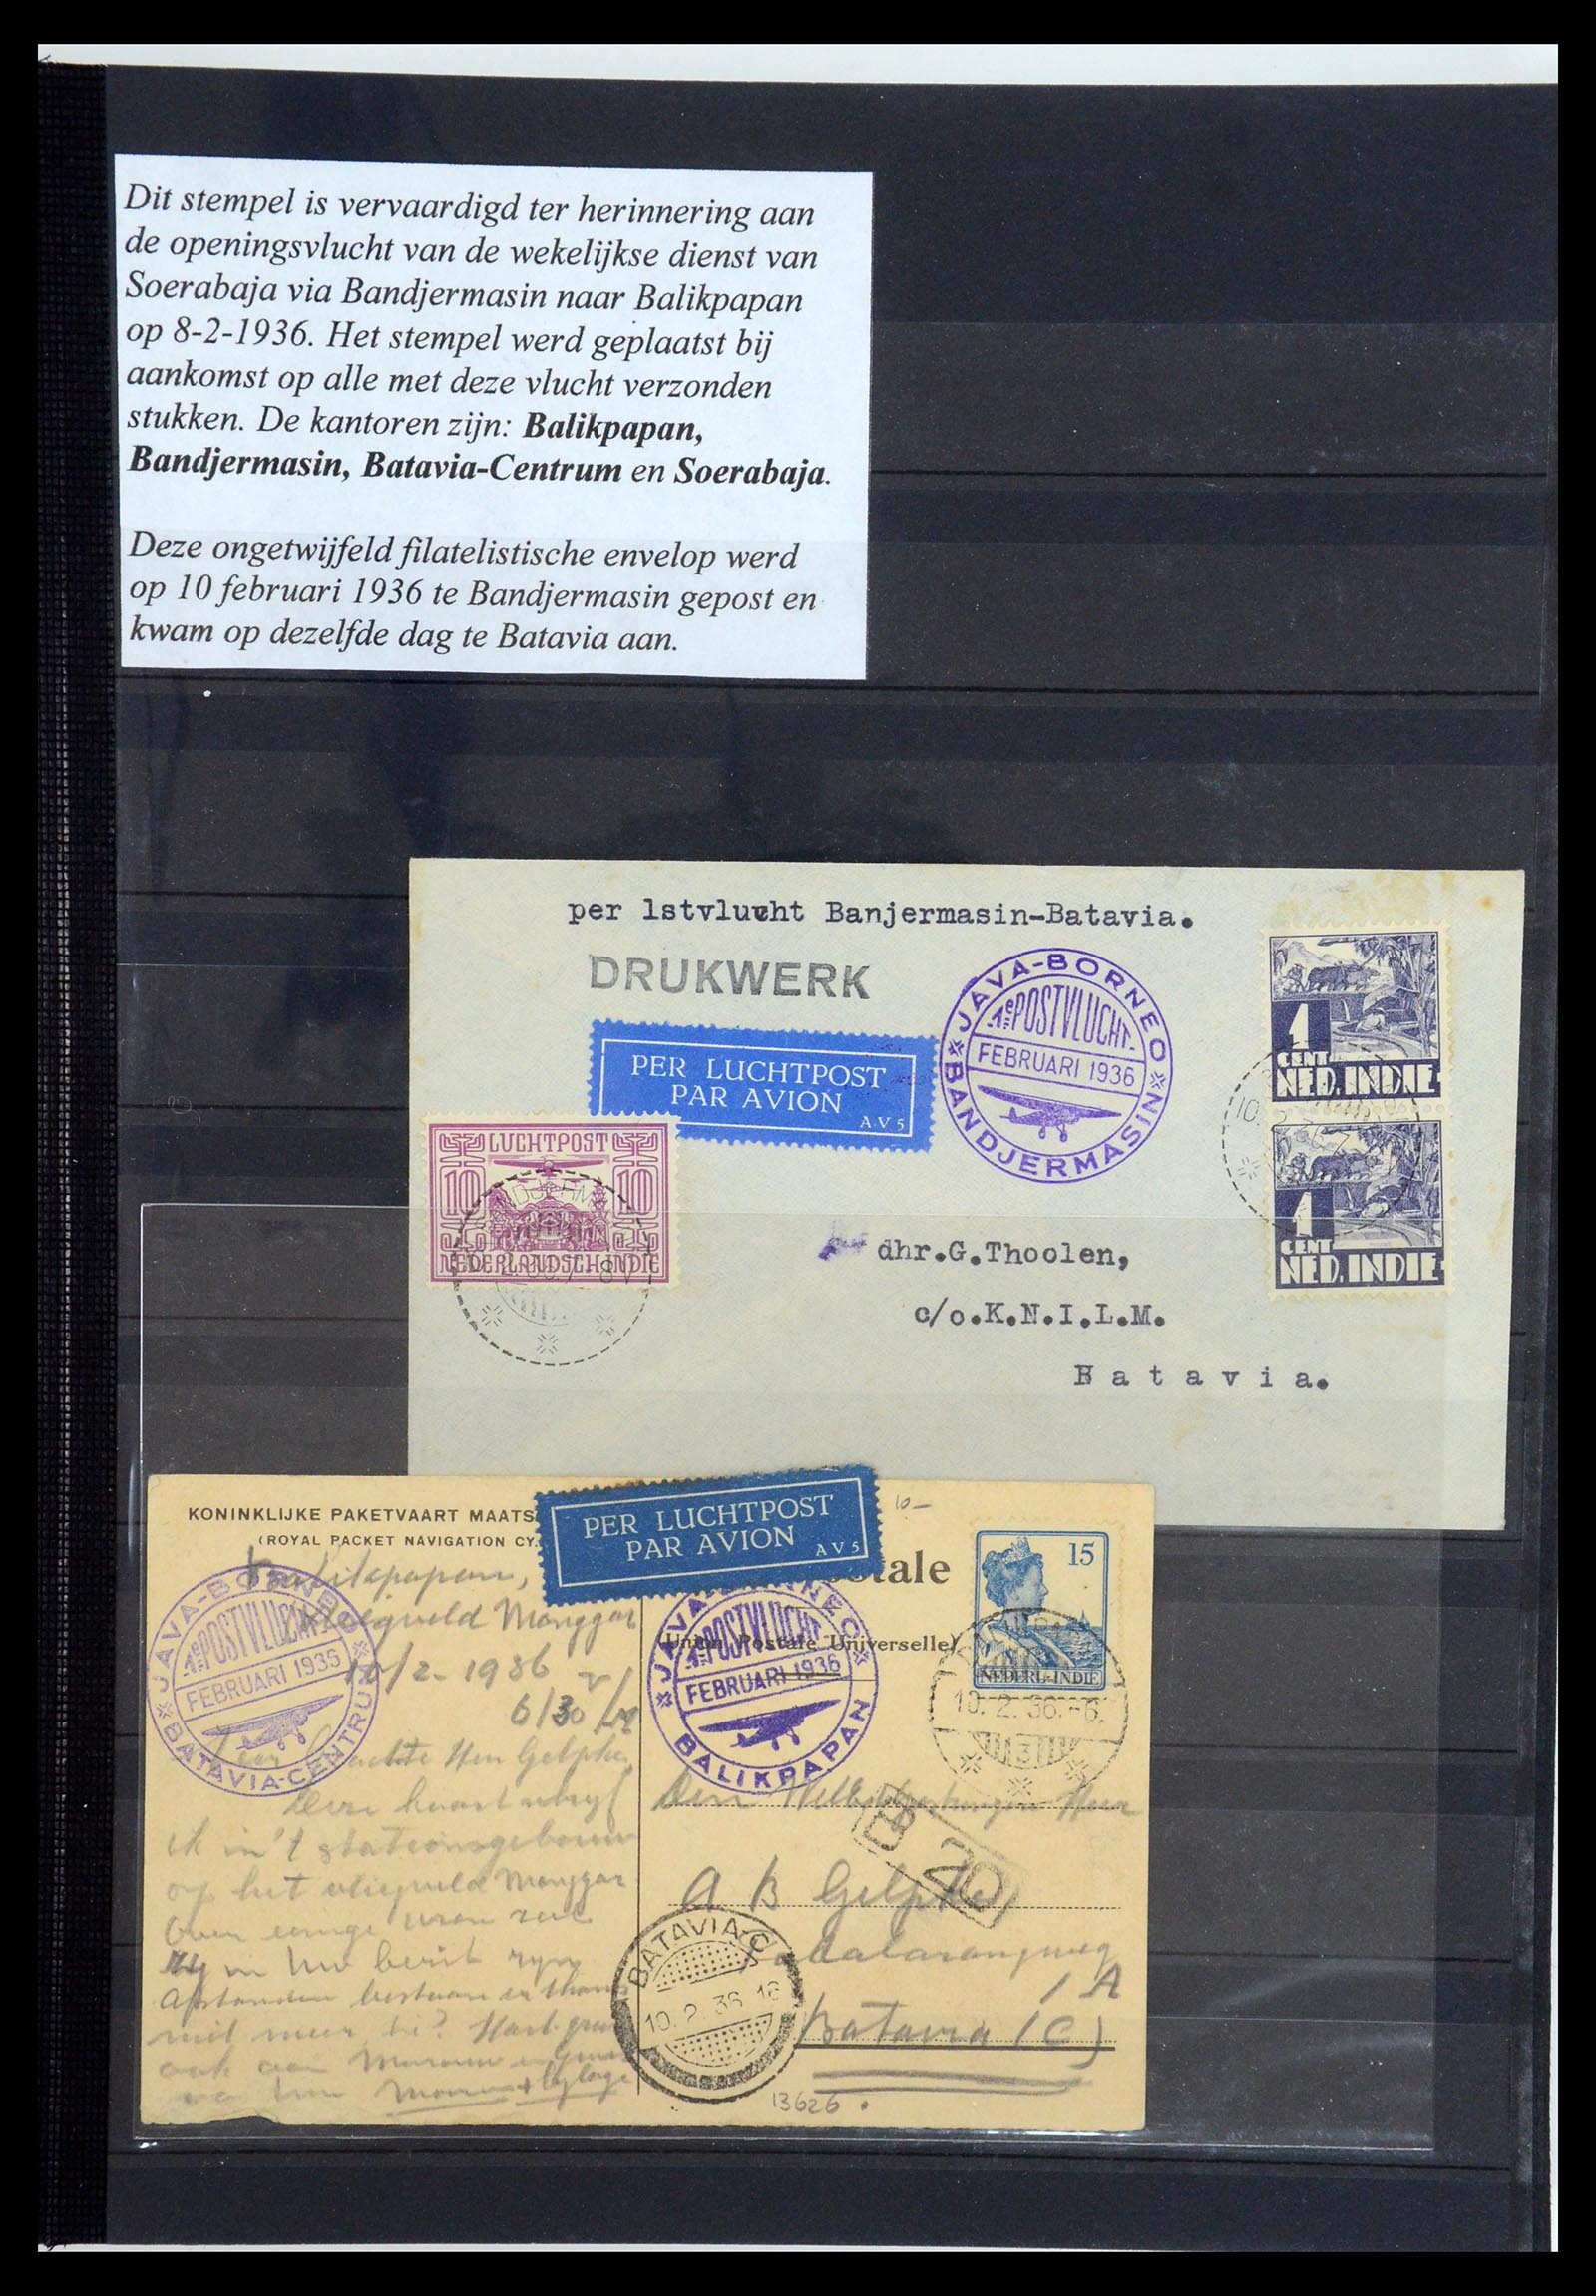 Dit stempel is vervaardigd ter herinnering aan
de openingsvlucht van de wekelijkse dienst van
Soerabaja via Bandjermasin naar Balikpapan
op 8-2-1936. Het stempel werd geplaatst bij
aankomst op alle met deze vlucht verzonden
stukken. De kantoren zijn: Balikpapan,
Bandjermasin, Batavia-Centrum en Soerabaja.
Deze ongetwijfeld filatelistische envelop werd
op 10 februari 1936 te Bandjermasin gepost en
kwam op dezelfde dag te Batavia aan.
per 1stvlucht Banjermasin-Batavia.
DRUKWERK
JAVA-BORNEO
1e POSTVLUCHT
FEBRUARI 1936
BANDJERMASIN
PER LUCHTPOST
PAR AVION
AV5
1
CENT
NED. INDIE
1
CENT
NED. INDIE
LUCHTPOST
10 10
NEDERLANDSCH-INDIE
dhr.G.Thoolen,
c/o.K.N.I.L.M.
Batavia.
KONINKLIJKE PAKETVAART MAATS
(ROYAL PACKET NAVIGATION CY.
PER LUCHTPOST
PAR AVION
AV5
10-
tale
(Union Postale Universelle)
15
NEDERL-INDIE
10.2.36.-6.
3
JAVA-BORNEO
1e POSTVLUCHT
FEBRUARI 1936
BATAVIA-CENTRUM
JAVA-BORNEO
1e POSTVLUCHT
FEBRUARI 1936
BALIKPAPAN
Balikpapan,
Vliegveld Manggar
10/2-1936
6/30
Gelpke,
Deze kaart schryf
ik in 't stationsgebouw
op het vliegveld Manggar
Over eenige uren zal
hy in Uw bezit zyn
Afstanden bestaan er thans
niet meer, hè? Hart. groet
ook aan Mevrouw
Den Heer
A B Gelpke,
1 A
Batavia (C)
B
20
BATAVIA-C
10.2.36 16
13626